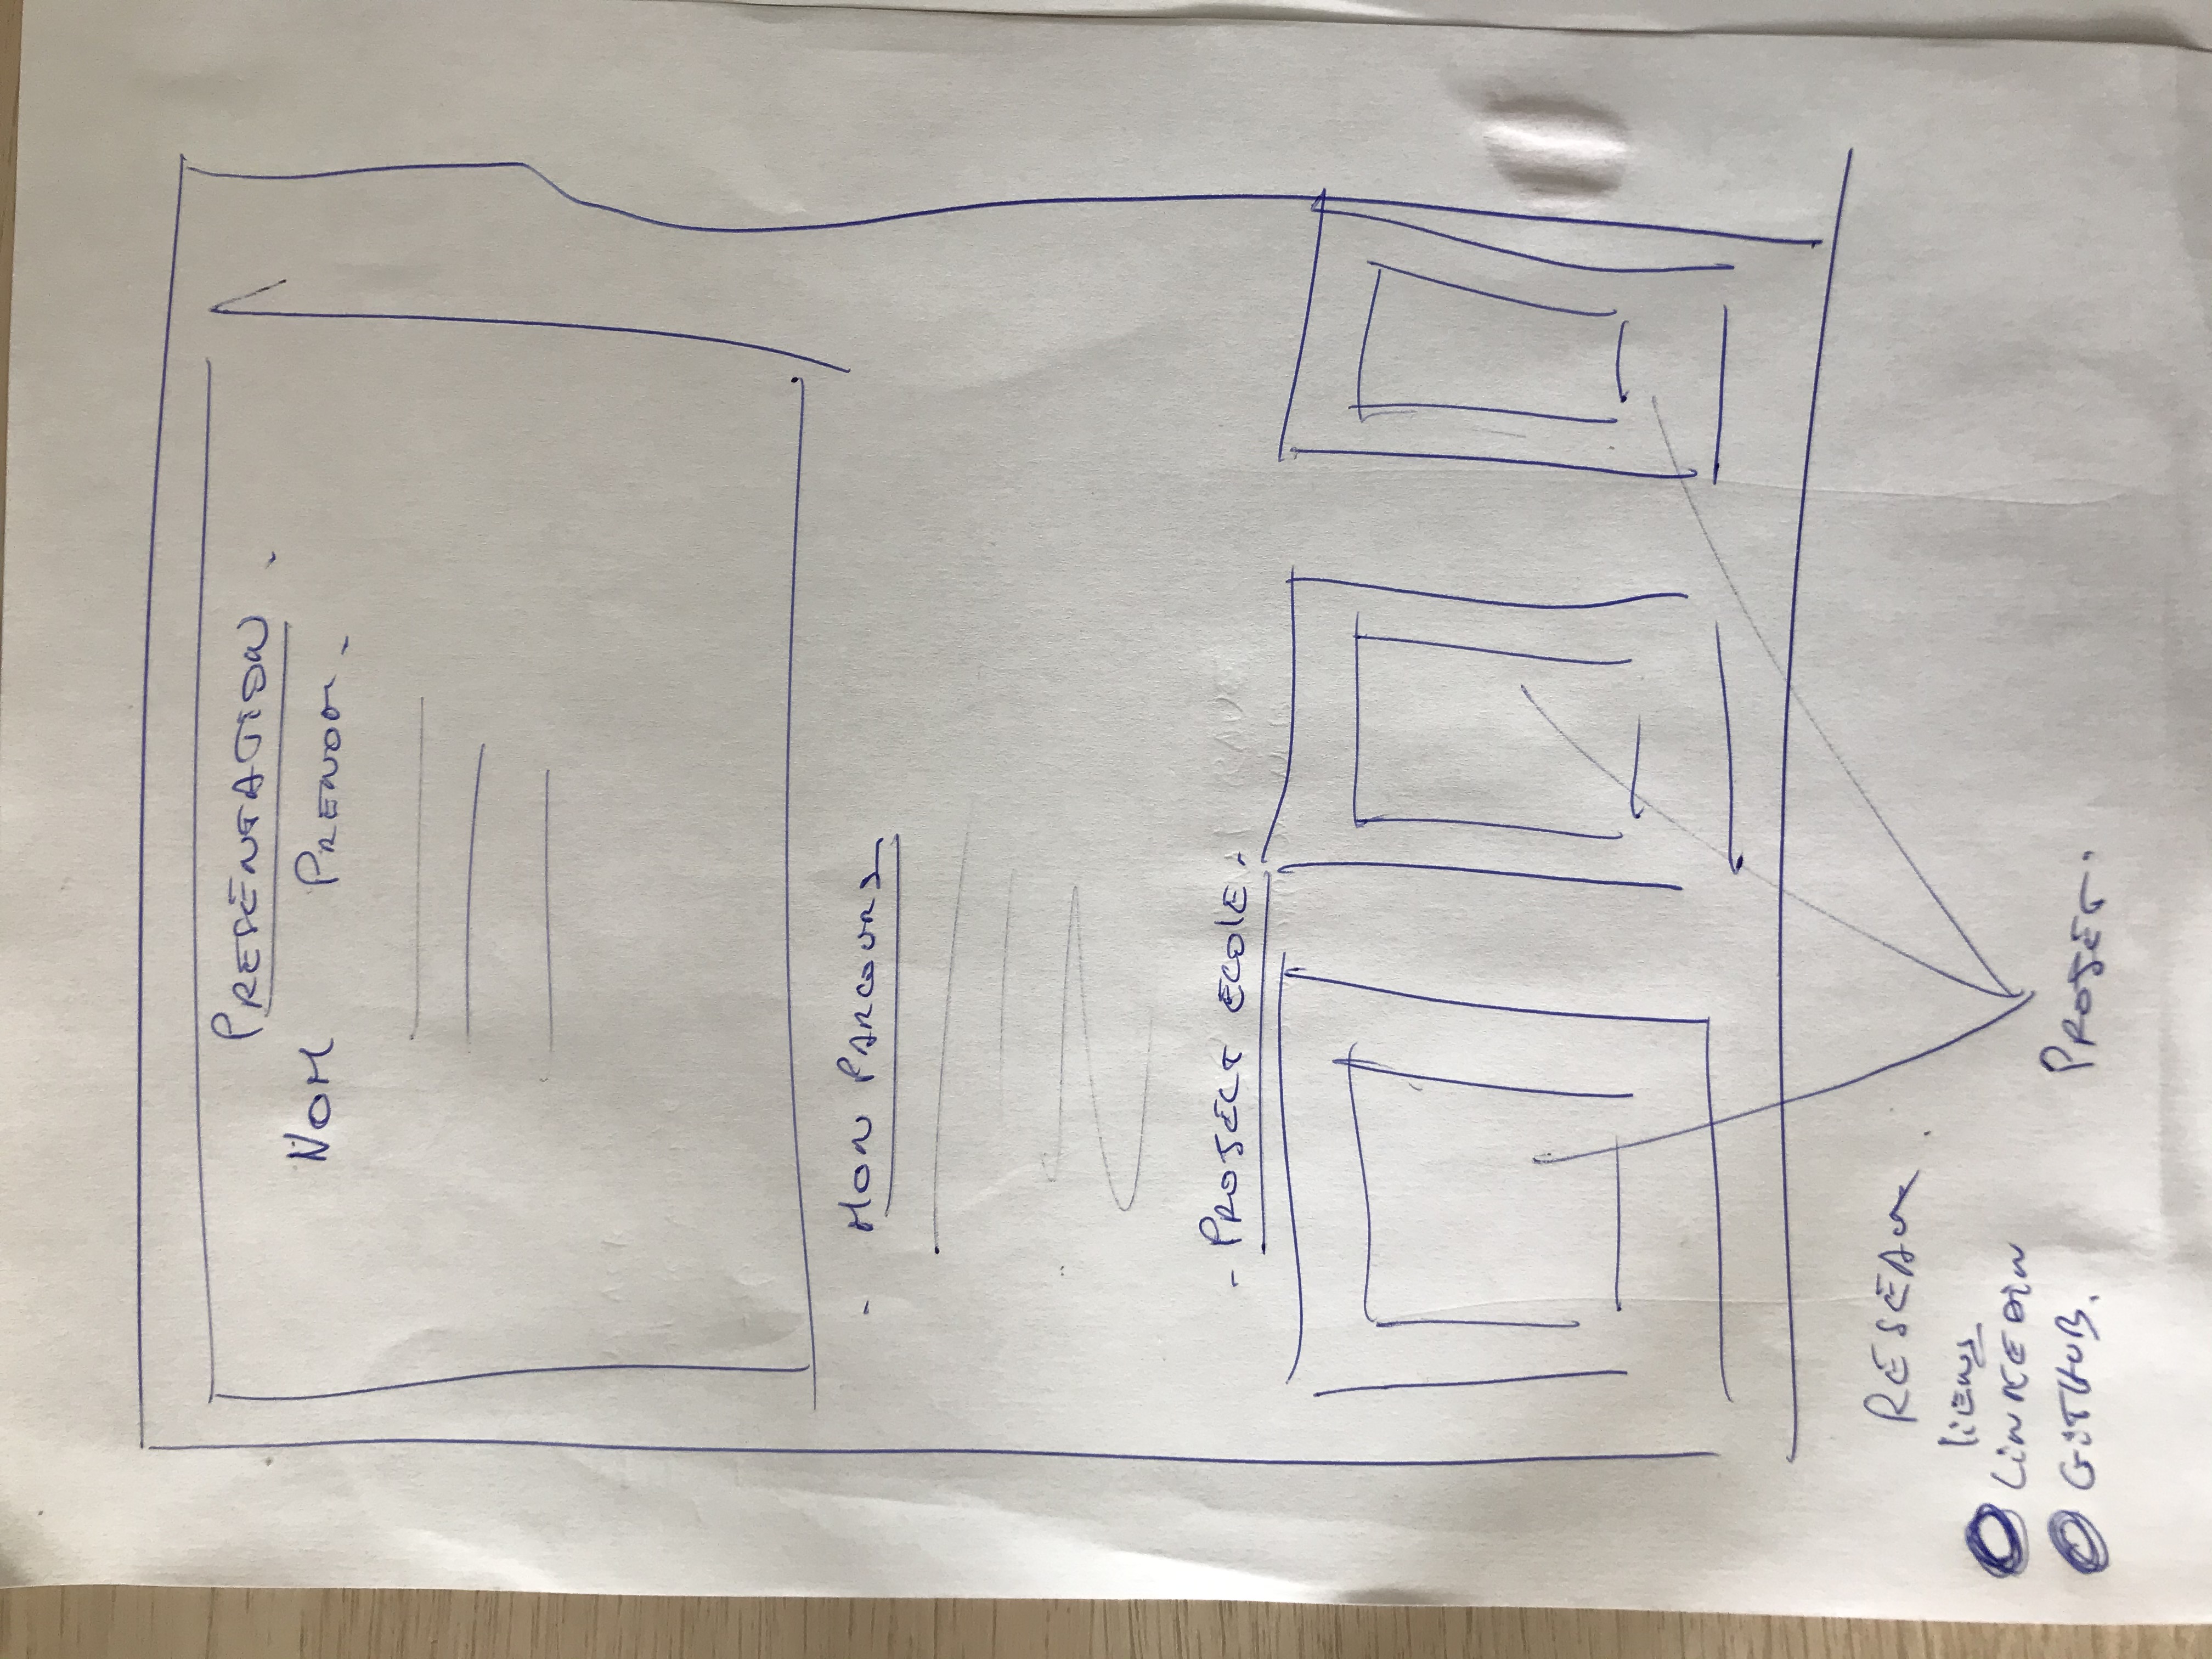 PRESENTATION.
NOM PRENOM.
- MON PARCOURS
- PROJECT ECOLE.
RESEAU.
liens
LINKEDIN
GITHUB.
PROJET.